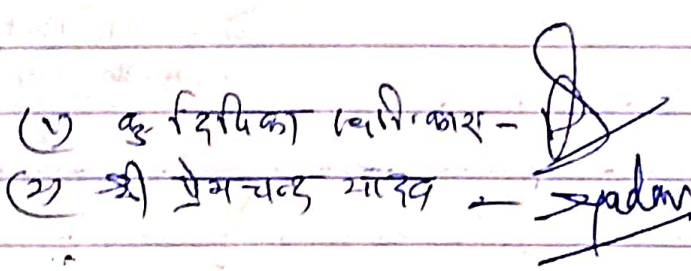 (1) कु. दिपिका
(2) श्री प्रेमचन्द यादव - Yadav